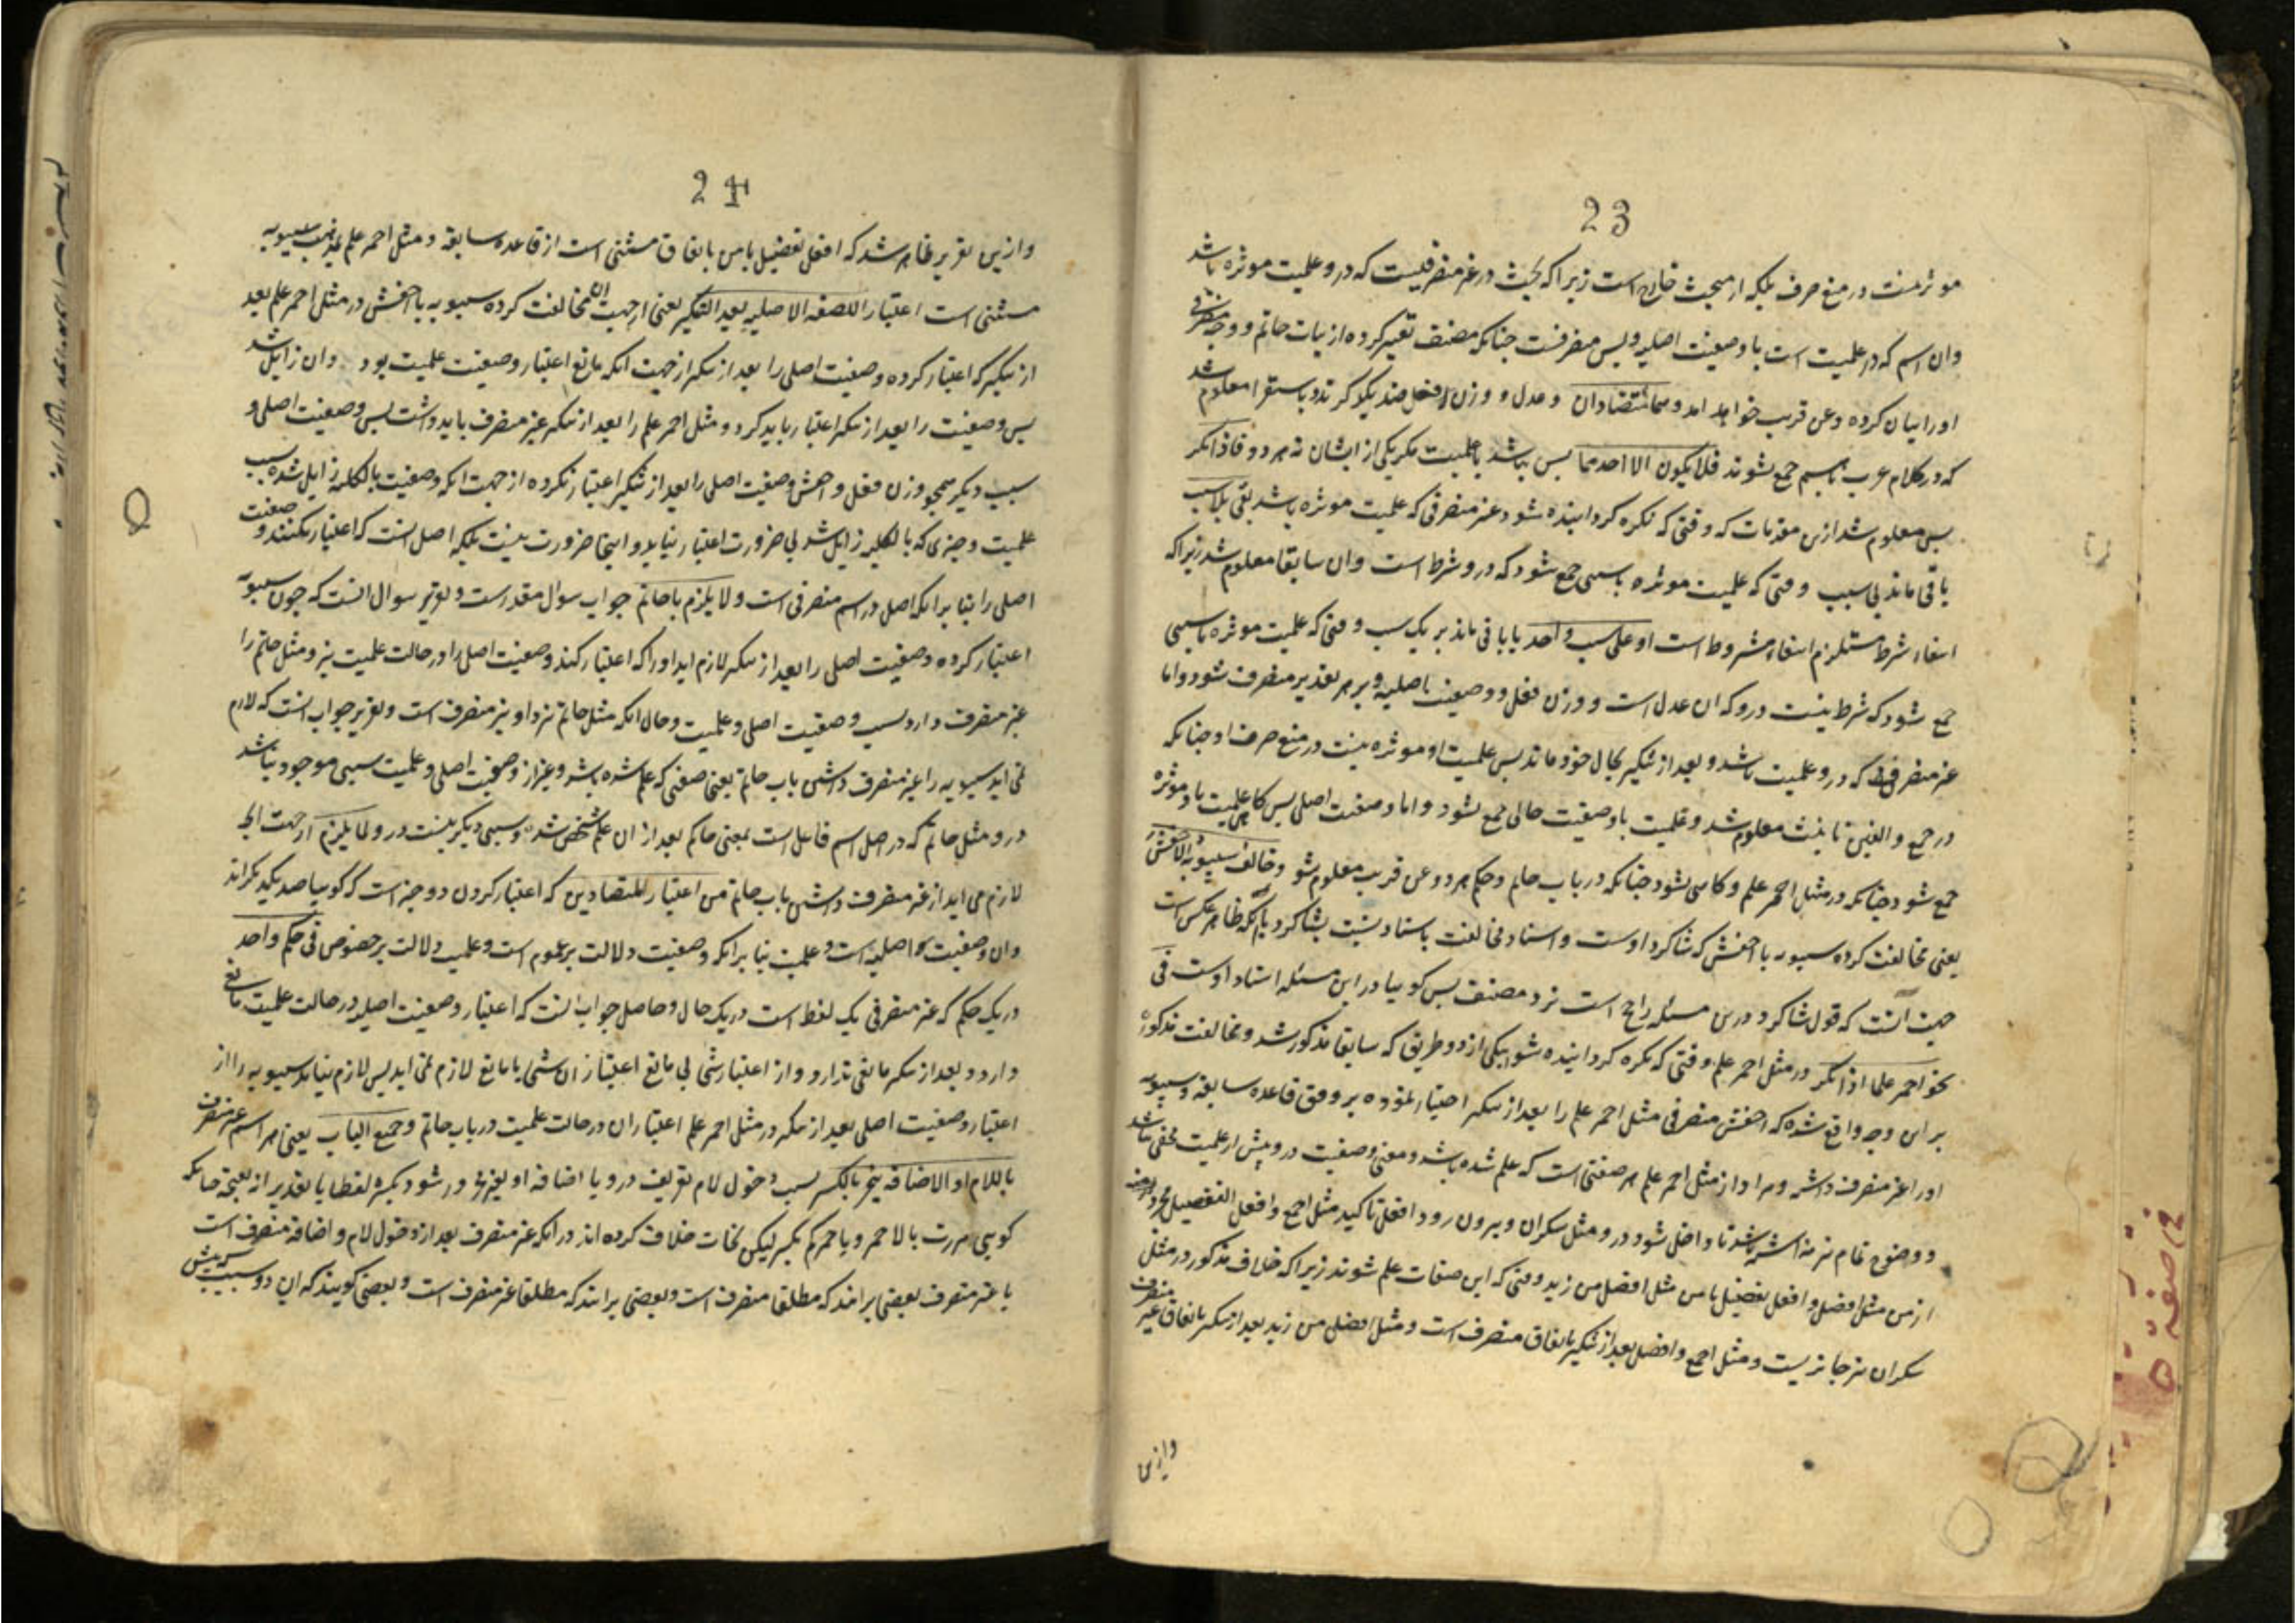 23
موثر نیست در منع صرف بلکه از مبحث خارج است زیرا که بحث در غیر منصرفیست که در و علمیت موثره باشد
وان اسم که در علمیت است با وصفیت اصلیه و لیس منصرفست چنانکه مصنف تعبیر کرده از باب حاتم و وجه منصرفی
او را بیان کرده و عن قریب خواهد امد و هما متضادان و عدل و وزن فعل ضد یکدیگرند و باستقرا معلوم شد
که در کلام عرب باهم جمع نشوند فلا یکون الا احدهما پس نباشد با علمیت مگر یکی از ایشان نه هر دو فاذا نکر
پس معلوم شد ازین مقدمات که وقتی که نکره گردانیده شود غیر منصرفی که علمیت موثره باشد بقی بلا سبب
باقی ماند بی سبب وقتی که علمیت موثره با سببی جمع شود که درو شرط است وان سابقا معلوم شد زیرا که
انتفاء شرط مستلزم انتفاء مشروط است او علی سبب واحد یا باقی ماند بر یک سبب وقتی که علمیت موثره با سببی
جمع شود که شرط نیست درو که ان عدل است و وزن فعل و وصفیت اصلیه و بر هر تقدیر منصرف شود واما
غیر منصرفی که درو علمیت باشد و بعد از تنکیر بحال خود ماند پس علمیت او موثره نیست در منع صرف او چنانکه
در جمع و الفین تانیث معلوم شد و علمیت با وصفیت حالی جمع نشود و اما وصفیت اصلی پس گاه علمیت با و موثره
جمع شود چنانکه در مثل احمر علم و گاهی نشود چنانکه در باب حاتم و حکم هر دو عن قریب معلوم شود وخالف سیبویه الاخفش
یعنی مخالفت کرده سیبویه با اخفش که شاگرد اوست و اسناد مخالفت باستاد نسبت بشاگرد با آنکه ظاهر عکس است
جهت آنست که قول شاگرد درین مسئله راجح است نزد مصنف پس گوییا در این مسئله استاد اوست فی
نحو احمر علما اذا نکر در مثل احمر علم وقتی که نکره گردانیده شود بیکی از دو طریق که سابقا مذکور شد و مخالفت مذکوره
بر این وجه واقع شده که اخفش منصرفی مثل احمر علم را بعد از تنکیر اختیار نموده بر وفق قاعده سابقه و سیبویه
او را غیر منصرف داشته و مراد از مثل احمر علم هر صفتی است که علم شده باشد و معنی وصفیت درو پیش از علمیت مخفی نباشد
و وضوح تمام نیز داشته باشد تا داخل شود درو مثل سکران و بیرون رود افعل تاکید مثل اجمع و افعل التفضیل مجرد
از من مثل افضل و افعل تفضیل با من مثل افضل من زید وقتی که این صفات علم شوند زیرا که خلاف مذکور در مثل
سکران نیز جاریست و مثل اجمع و افضل بعد از تنکیر باتفاق منصرف است و مثل افضل من زید بعد از تنکیر باتفاق غیر منصرف
وازین
24
وازین تقریر ظاهر شد که افعل تفضیل با من باتفاق مستثنی است از قاعده سابقه و مثل احمر علم نزد سیبویه
مستثنی است اعتبارا للصفه الاصلیه بعد التنکیر یعنی از جهت انکه مخالفت کرده سیبویه با اخفش در مثل احمر علم بعد
از تنکیر که اعتبار کرده وصفیت اصلی را بعد از تنکیر از جهت انکه مانع اعتبار وصفیت علمیت بود وان زایل شد
پس وصفیت را بعد از تنکیر اعتبار باید کرد و مثل احمر علم را بعد از تنکیر غیر منصرف باید داشت بسبب وصفیت اصلی و
سبب دیگر همچو وزن فعل و اخفش وصفیت اصلی را بعد از تنکیر اعتبار نکرده از جهت انکه وصفیت بالکلیه زایل شده بسبب
علمیت و چیزی که بالکلیه زایل شد بی ضرورت اعتبار نباید و اینجا ضرورت نیست بلکه اصل انست که اعتبار نکنند وصفیت
اصلی را بنا بر انکه اصل در اسم منصرفی است ولا یلزم باب حاتم جواب سوال مقدر است و تقریر سوال انست که چون سیبویه
اعتبار کرده وصفیت اصلی را بعد از تنکیر لازم اید او را که اعتبار کند وصفیت اصلی را در حالت علمیت نیز و مثل حاتم را
غیر منصرف دارد بسبب وصفیت اصلی و علمیت و حال انکه مثل حاتم نزد او نیز منصرف است و تقریر جواب انست که لازم
نمی اید سیبویه را غیر منصرف داشتن باب حاتم یعنی صفتی که علم شده باشد و غیر از وصفیت اصلی و علمیت سببی موجود نباشد
درو مثل حاتم که در اصل اسم فاعل است بمعنی حاکم بعد از ان علم شخصی شده و سببی دیگر نیست درو لما یلزم از جهت انکه
لازم می اید از غیر منصرف داشتن باب حاتم من اعتبار المتضادین که اعتبار کردن دو چیز است که گوییا ضد یکدیگراند
وان وصفیت اصلیه است و علمیت بنا بر انکه وصفیت دلالت بر عموم است و علمیت دلالت بر خصوص فی حکم واحد
در یک حکم که غیر منصرفی یک لفظ است در یک حال و حاصل جواب انست که اعتبار وصفیت اصلیه در حالت علمیت مانع
دارد و بعد از تنکیر مانعی ندارد و از اعتبار شی بی مانع اعتبار ان شی با مانع لازم نمی اید پس لازم نیامد سیبویه را از
اعتبار وصفیت اصلی بعد از تنکیر در مثل احمر علم اعتبار ان در حالت علمیت در باب حاتم وجمیع الباب یعنی هر اسم غیر منصرف
باللام او الاضافه ینجر بالکسر بسبب دخول لام تعریف درو یا اضافه او بغیر مجرور شود بکسره لفظا یا تقدیرا چنانکه
گویی مررت بالاحمر و باحمرکم بکسر لیکن نحات خلاف کرده اند در انکه غیر منصرف بعد از دخول لام و اضافه منصرف است
یا غیر منصرف بعضی برانند که مطلقا منصرف است و بعضی برانند که مطلقا غیر منصرف است و بعضی گویند که ان دو سبب